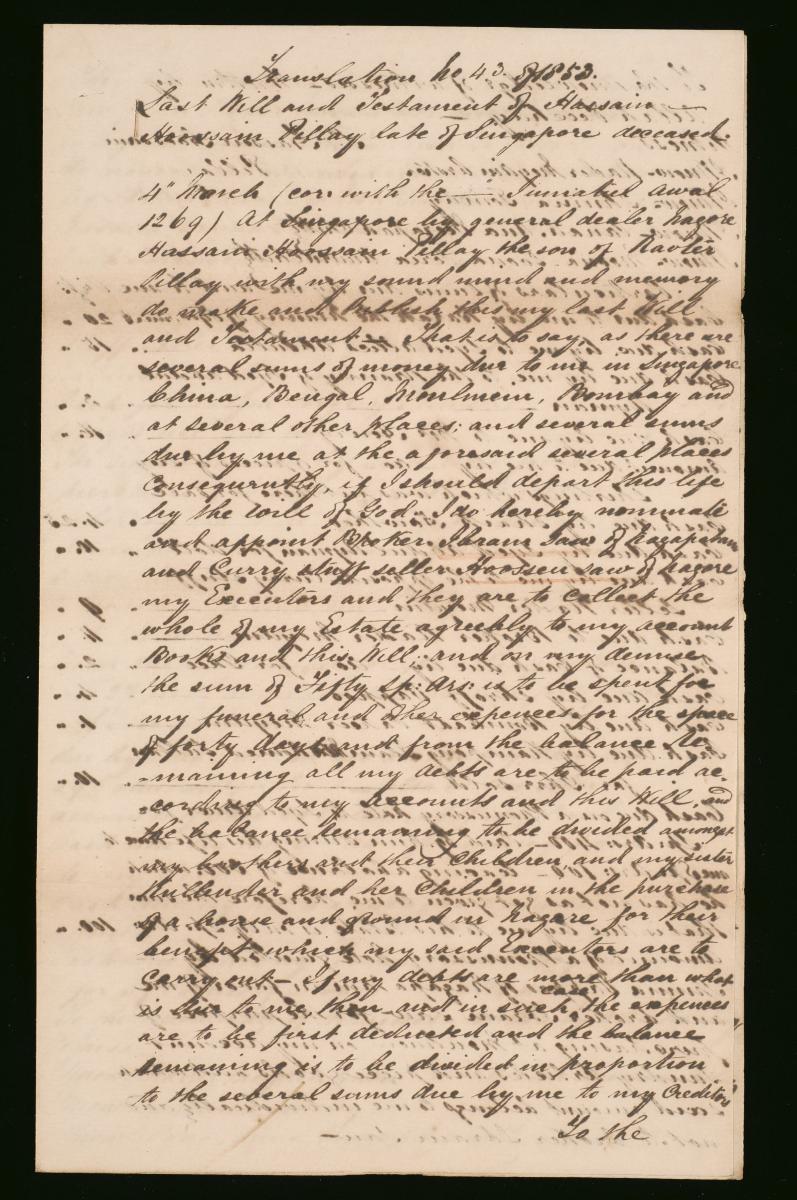 Translation No. 43. of 1853.
Last Will and Testament of Hassain
Hoossain Pillay late of Singapore deceased.
4" March (cor: with the — Jumatiel Awal
1269) At Singapore by general dealer Nagore
Hassain Hoossain Pillay the son of Ravter
Pillay with my sound mind and memory
do make and Publish this my last Will
and Testament — That is to say, as there are
several sums of money due to me in Singapore
China, Bengal, Moulmein, Bombay and
at several other places; and several sums
due by me at the aforesaid several places
Consequently, if I should depart this life
by the Will of God, I do hereby nominate
and appoint Broker Ibram Saw of Nagapatam
and Curry stuff seller Hoossen Saw of Nagore
my Executors and they are to collect the
whole of my Estate agreebly to my account
Books and this Will: and on my demise
the sum of Fifty Sp: Drs: is to be spent for
my funeral and other expences for the space
of forty days and from the balance re-
-maining all my debts are to be paid ac-
-cording to my accounts and this Will, and
the balance remaining to be divided amongst
my brothers and their Children, and my sister
and her Children in the purchase
of a house and ground in Nagore for their
benefit which my said Executors are to
carry out — If my debts are more than what
is due to me then and in such case the expences
are to be first deducted and the balance
remaining is to be divided in proportion
to the several sums due by me to my Creditors
To the